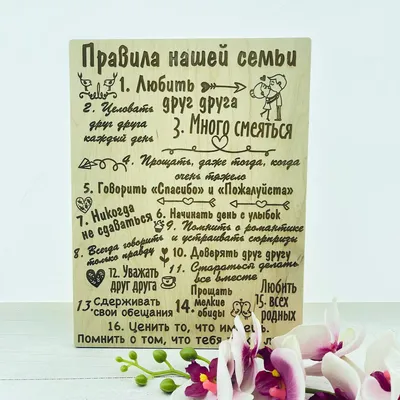 Правила нашей семьи
1. Любить
друг друга
2. Целовать
друг друга
каждый день
3. Много смеяться
4. Прощать, даже тогда, когда
очень тяжело
5. Говорить «Спасибо» и «Пожалуйста»
7. Никогда
не сдаваться
6. Начинать день с улыбок
9. Помнить о романтике
и устраивать сюрпризы
8. Всегда говорить
только правду
10. Доверять друг другу
11. Стараться делать
все вместе
12. Уважать
друг друга
13. Сдерживать
свои обещания
14. Прощать
мелкие
обиды
15. Любить
всех
родных
16. Ценить то, что имеешь.
Помнить о том, что тебя